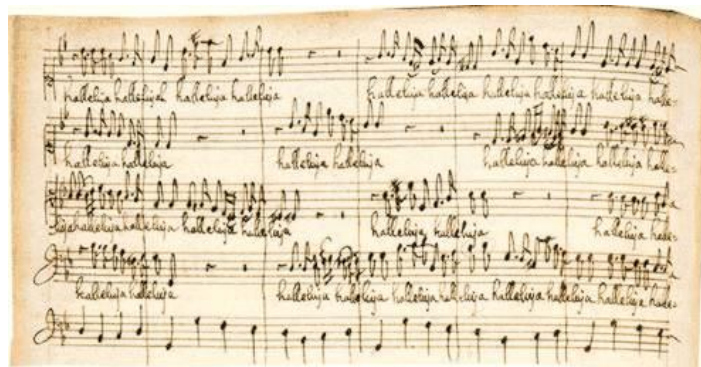 halleluja hallelujah halleluja halleluja halleluja halleluja halleluja halleluja halle-
halleluja halleluja halleluja halleluja halleluja halleluja halleluja halle-
luja halleluja halleluja halleluja halleluja halleluja halleluja halleluja halle-
halleluja halleluja halleluja halleluja halleluja halleluja halleluja halleluja halle-